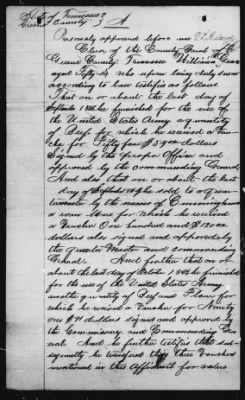 State of Tennessee
Greene County
Personaly appeared before me
Clern of the County Court of
Greene County Tennessee William
aged Fifty who upon being duly sworn
according to law testifies as follows
That on or about the last day of
Septembr 1863 he furnished for the use of
the United States Army a quantity
of Beef for which he received a Vou-
cher for Fifty four dollars
Signed by the proper Officer and
approved by the commanding General
And also that on or about the last
day of Septembr he sold to a quar-
termaster by the name of Cunningham
a roan for which he received
a Voucher One hundred and dollars
dollars also signed and approved by
the quarter Master and commanding
General. And further that on or
about the last day of October 1863 he furnished
for the use of the United States Army
another quantity of Beef and Flour for
which he received a Voucher for Ninety
one dollars signed and approved by
the Commissary and Commanding Gen-
eral. And he further testifies that sub-
sequently he transfered these three Vouchers
mentioned in this Affidavit for value